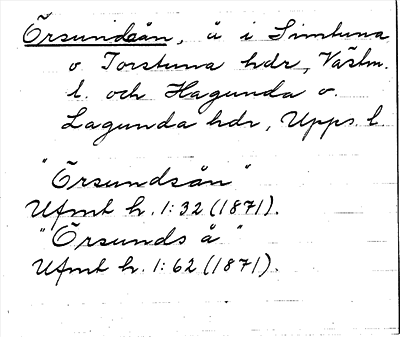 Örsundsån, å i Simtuna
o Torstuna hdr, Västm.
l. och Hagunda o.
Lagunda hdr, Upps. l
"Örsundsån"
Ufmt h. 1:32 (1871).
"Örsunds å"
Ufmt h. 1:62 (1871).